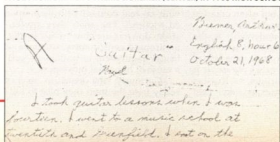 Bremen, Andrew
English 8, hour 6
October 21, 1968
A
"Guitar"
I took guitar lessons when I was
fourteen. I went to a music school at
twentieth and Greenfield. I sat on the